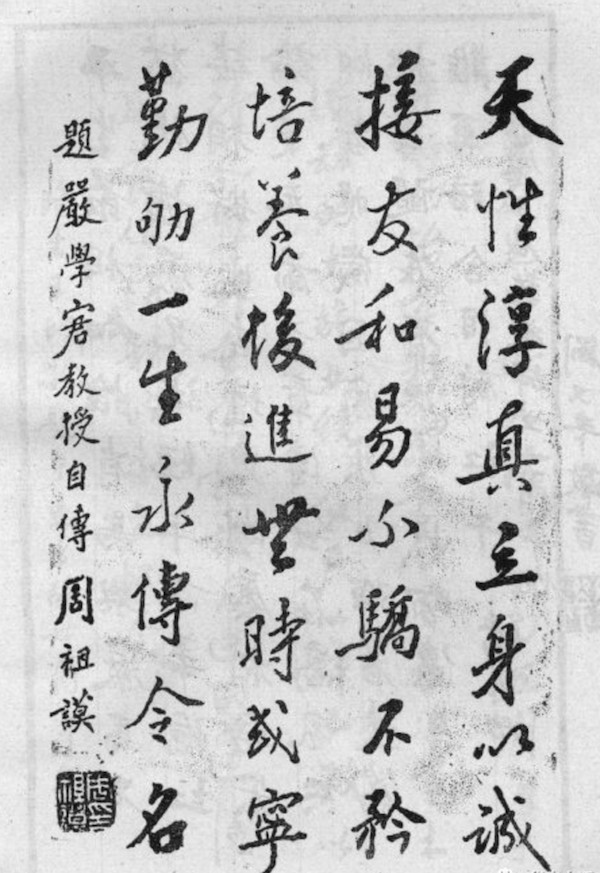 天性淳真立身以誠
接友和易不驕不矜
培養後進無時或寧
勤劬一生永傳令名
題嚴學宭教授自傳 周祖謨